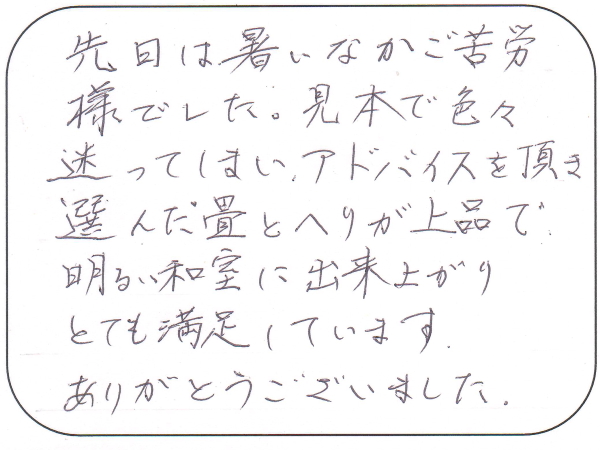 先日は暑いなかご苦労
様でした。見本で色々
迷ってしまい、アドバイスを頂き
選んだ畳とヘリが上品で
明るい和室に出来上がり
とても満足しています。
ありがとうございました。